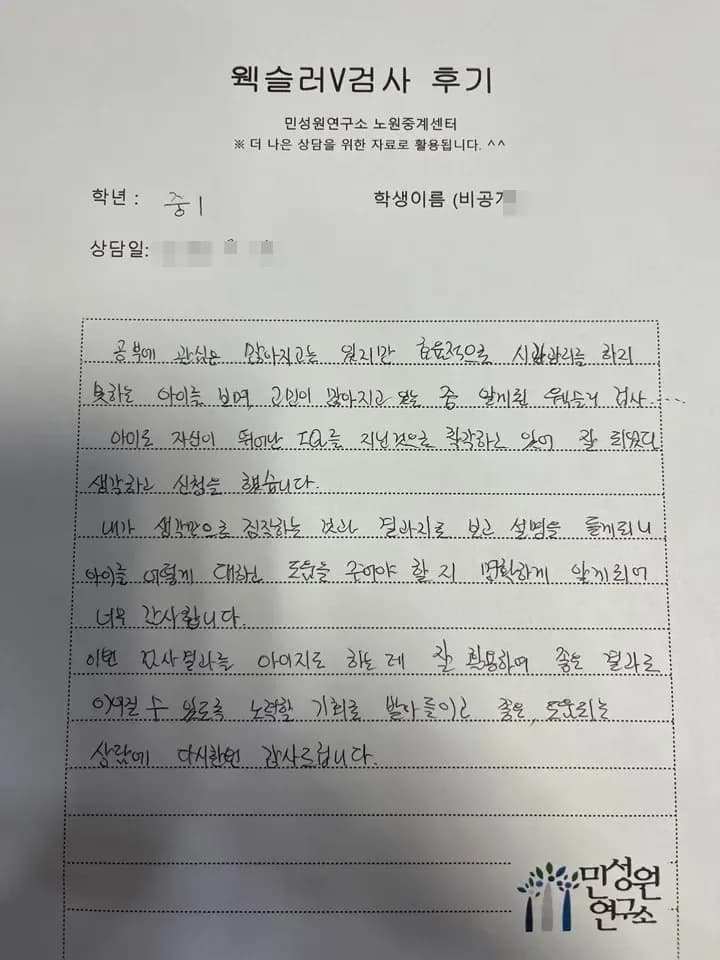 웩슬러V검사 후기
민성원연구소 노원중계센터
※ 더 나은 상담을 위한 자료로 활용됩니다. ^^
학년 : 중1
학생이름 (비공개
상담일:
공부에 관심은 많아지고는 있지만 효율적으로 시간관리를 하지
못하는 아이를 보며, 고민이 많아지고 있는 중 알게된 웩슬러 검사....
아이도 자신이 뛰어난 IQ를 지닌것으로 착각하고 있어 잘 되었다
생각하고 신청을 했습니다.
내가 생각만으로 짐작하는 것과 결과지로 보고 설명을 듣게되니
아이를 어떻게 대하고 도움을 주어야 할 지 명확하게 알게되어
너무 감사합니다.
이번 검사결과를 아이지도 하는데 잘 활용하여 좋은 결과로
이어질 수 있도록 노력할 기회로 받아들이고 좋은, 도움되는
상담에 다시한번 감사드립니다.
민성원
연구소